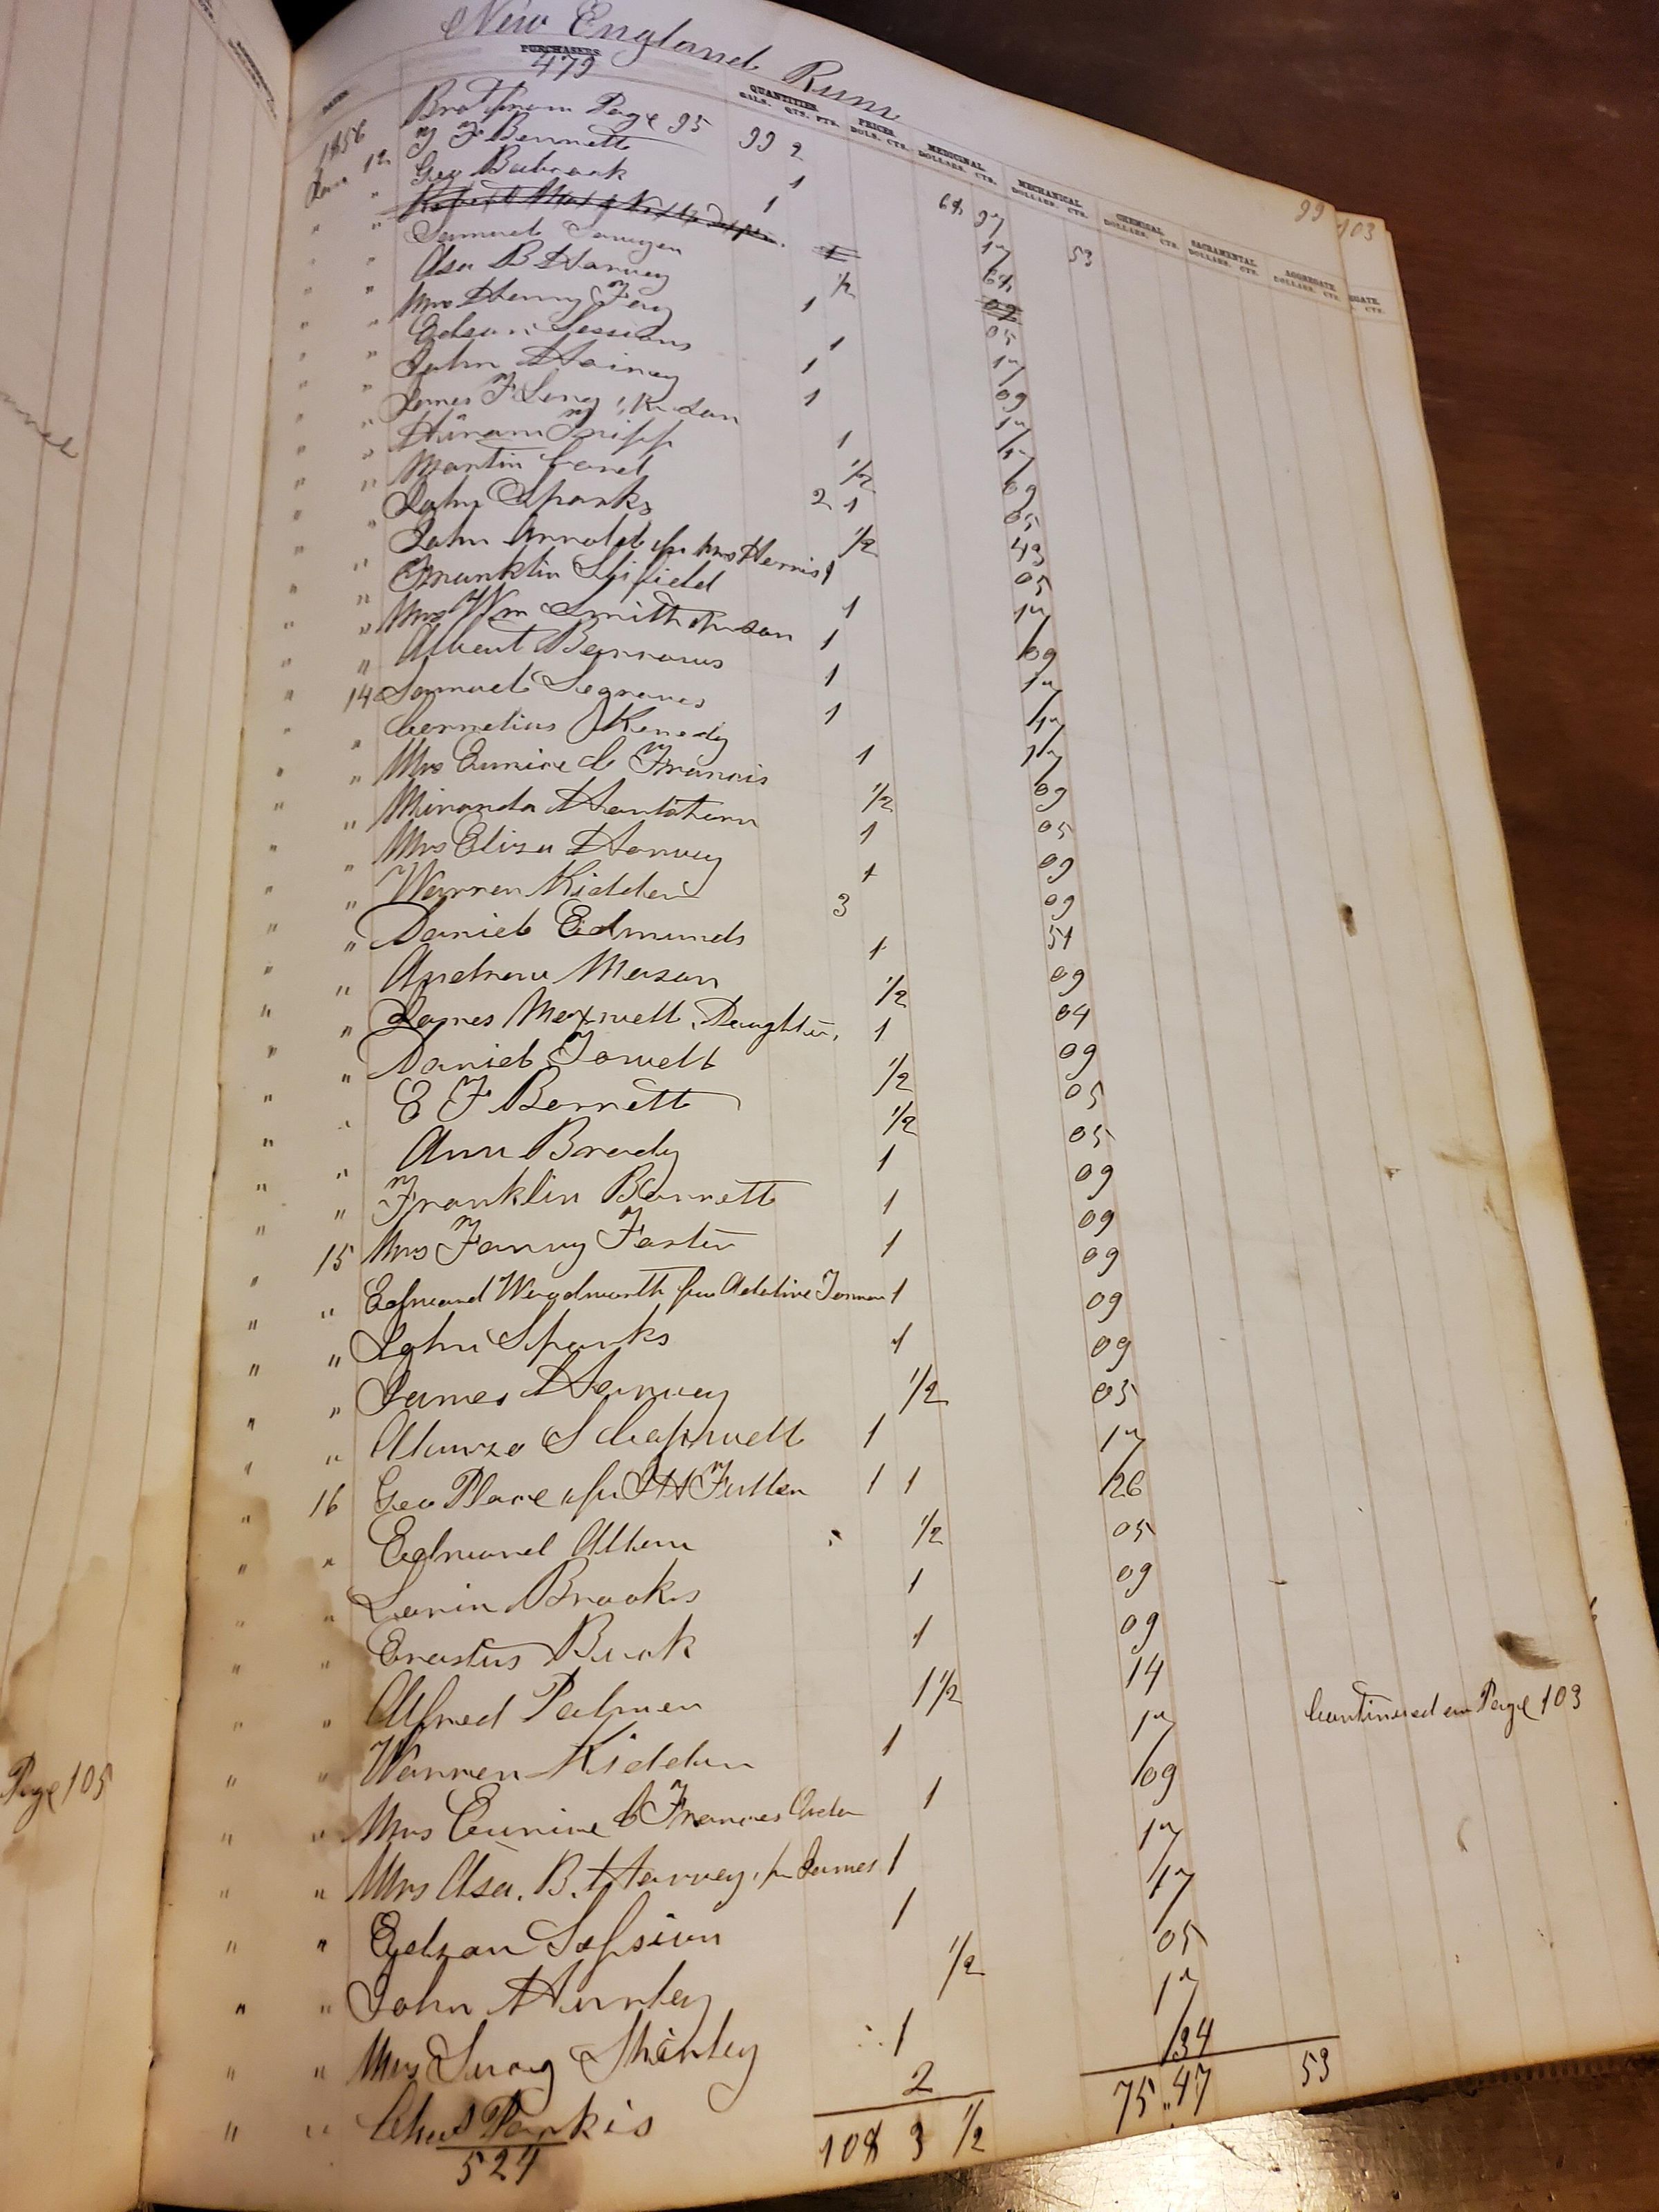 New England Rum
99 103
DATES. PURCHASERS. QUANTITIES. PRICES. MEDICINAL. MECHANICAL. CHEMICAL. SACRAMENTAL. AGGREGATE.
GALS. QTS. PTS. DOLS. CTS. DOLLARS. CTS. DOLLARS. CTS. DOLLARS. CTS. DOLLARS. CTS. DOLLARS. CTS.
479
1856 Brot from Page 95 99 2 53
12 F Bennett 1 17
" " Geo Babcock 1
" " Samuel 1/2 05
" " Asa B Harvey 1 17
" " Mrs Henry 1 09
" " Edson Sessions 1 17
" " John 1 17
" " James F 1 09
" " Hiram Tripp 1/2 05
" " Martin 2 1 43
" " John Sparks 1/2 05
" " John Arnold for Mrs Harris 1 17
" " Franklin Fifield 1 09
" " Mrs Wm Smith son 1 17
" " Albert Barrows 1 17
" 14 Samuel Segraves 1 17
" " Cornelius Kenedy 1 09
" " Mrs Eunice C Francis 1/2 05
" " Miranda 1 09
" " Mrs Eliza Harvey 1 09
" " Warren Kidder 3 51
" " Daniel Edmunds 1 09
" " Andrew Mason 1/2 04
" " James Maxwell Daughter. 1 09
" " Daniel 1/2 05
" " E F Barrett 1/2 05
" " Ann Brady 1 09
" " Franklin Barrett 1 09
" 15 Mrs Fanny Foster 1 09
" " Edmund Woodworth for Adeline 1 09
" " John Sparks 1 09
" " James Harvey 1/2 05
" " Alonzo S 1 17
" 16 Geo Place for Fuller 1 1 26
" " Edmund Allen 1/2 05
" " Lorin Brooks 1 09
" " Erastus Buck 1 09
" " Alfred Palmer 1 1/2 14
" " Warren Kidder 1 17
" " Mrs Eunice C Frances Order 1 09
" " Mrs Asa. B. Harvey, for James 1 17
" " Edson Session 1 17
" " John Hurley 1/2 05
" " Mrs Lucy Shirley 1 17
" " Chas Parkis 2 34
524 108 3 1/2 75.47 53
Continued on Page 103
Page 105